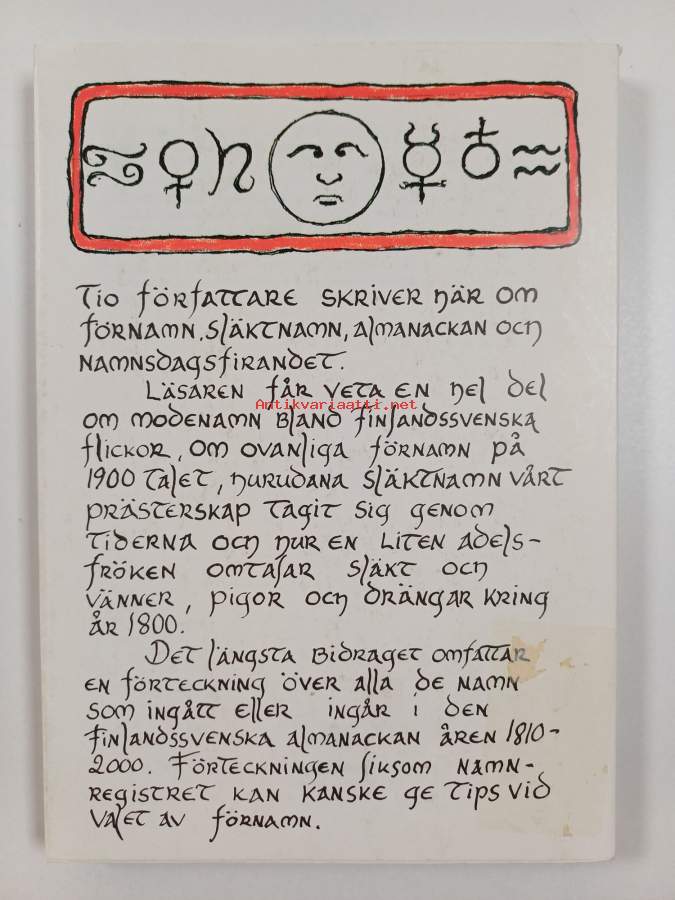 Tio författare skriver här om
förnamn, släktnamn, almanackan och
namnsdagsfirandet.
Läsaren får veta en hel del
Antikvariaatti.net
om modenamn bland finlandssvenska
flickor, om ovanliga förnamn på
1900 talet, hurudana släktnamn vårt
prästerskap tagit sig genom
tiderna och hur en liten adels-
fröken omtalar släkt och
vänner, pigor och drängar kring
år 1800.
Det längsta bidraget omfattar
en förteckning över alla de namn
som ingått eller ingår i den
finlandssvenska almanackan åren 1810-
2000. Förteckningen liksom namn-
registret kan kanske ge tips vid
valet av förnamn.